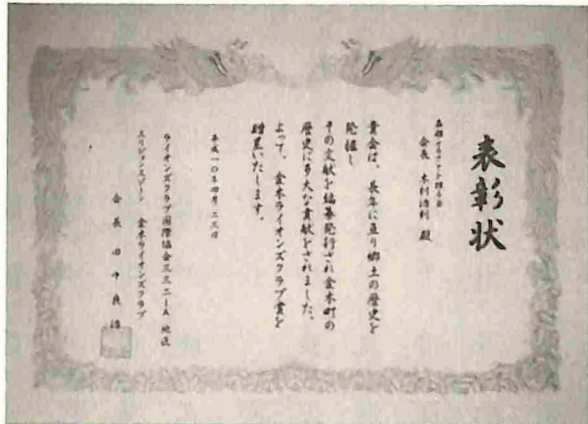 表彰状
会長 木村治利 殿
貴会は、長年に亘り郷土の歴史を
発掘し
その文献を編纂発行され金木町の
歴史に多大な貢献をされました。
よって、金木ライオンズクラブ賞を
贈呈いたします。
平成一〇年四月二三日
ライオンズクラブ国際協会三三二―A 地区
金木ライオンズクラブ
会長 田中良治